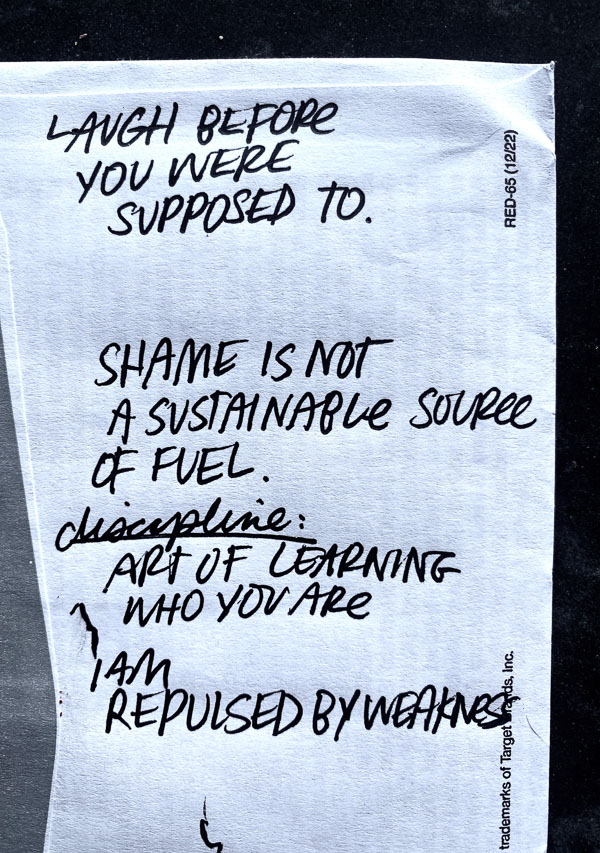 LAUGH BEFORE
YOU WERE
SUPPOSED TO.
SHAME IS NOT
A SUSTAINABLE SOURCE
OF FUEL.
discipline:
ART OF LEARNING
WHO YOU ARE
I AM
REPULSED BY WEAKNESS
RED-65 (12/22)
trademarks of Target Brands, Inc.